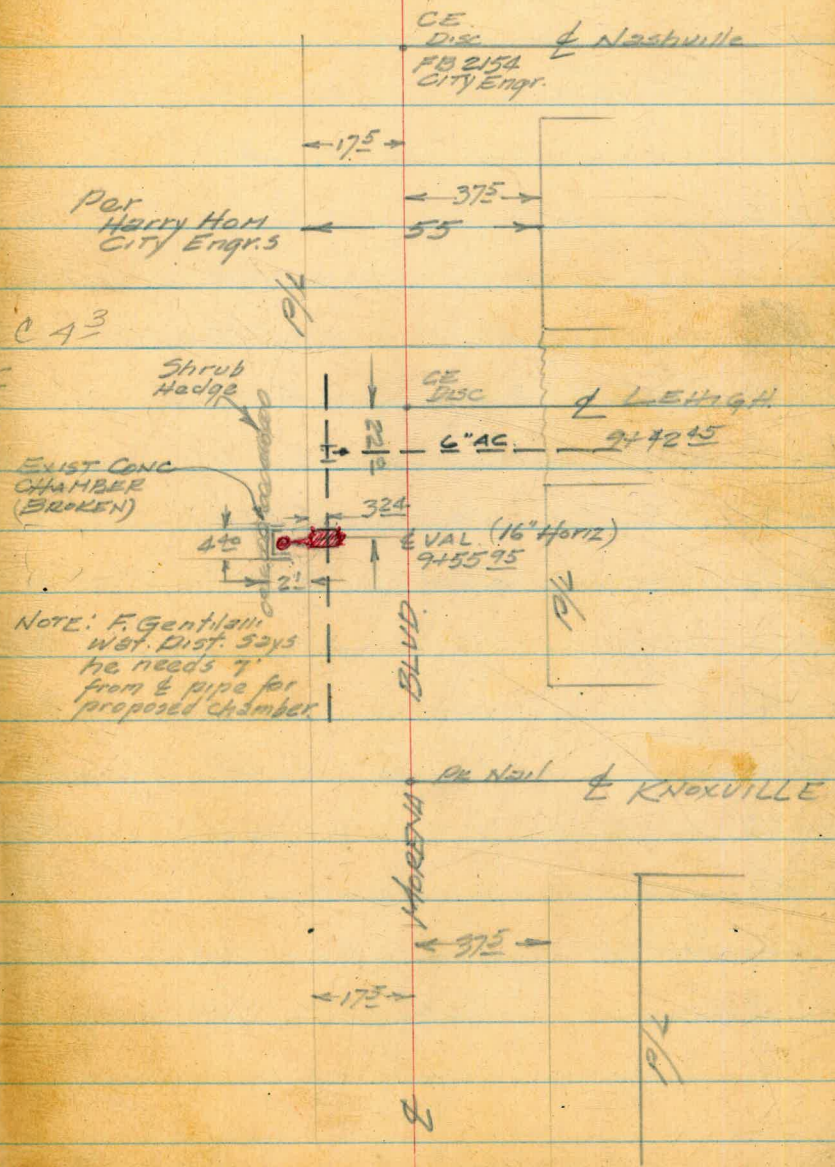 CE
DISC
FB 2154
CITY Engr.
℄ Nashville
17⁵
37⁵
Per
Harry Hom
CITY Engr.s
55
P/L
C 4³
Shrub
Hedge
CE
DISC
℄ LEHIGH
22⁰
6" AC
9+42⁴⁵
EXIST CONC
CHAMBER
(BROKEN)
3²⁴
4⁴⁰
℄ VAL (16" Horiz)
9+55⁹⁵
2¹
P/L
NOTE: F. Gentilalli
Wat. Dist. Says
he needs 7'
from ℄ pipe for
proposed chamber.
MORENA BLVD.
PK Nail
℄ KNOXVILLE
37⁵
17⁵
P/L
℄